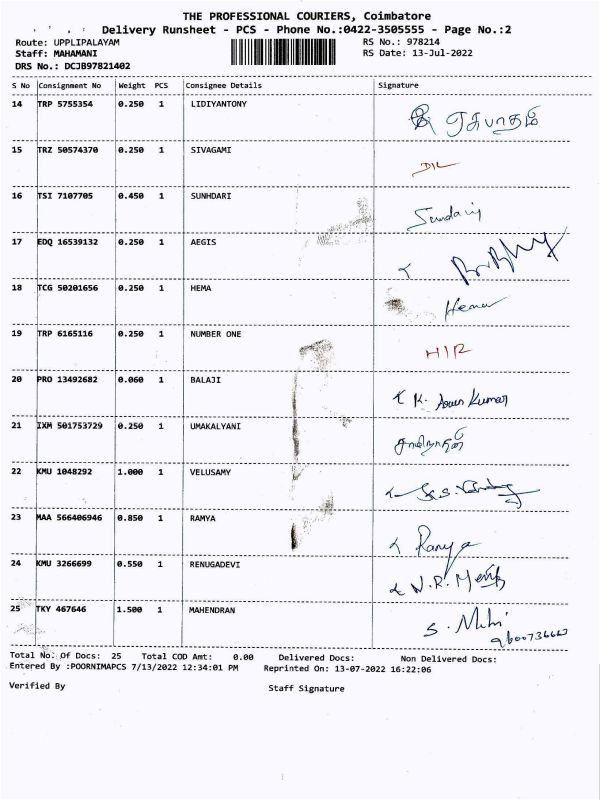 THE PROFESSIONAL COURIERS, Coimbatore
Delivery Runsheet - PCS - Phone No.:0422-3505555 - Page No.:2
Route: UPPLIPALAYAM RS No.: 978214
Staff: MAHAMANI RS Date: 13-Jul-2022
DRS No.: DCJB97821402
S No Consignment No Weight PCS Consignee Details Signature
14 TRP 5755354 0.250 1 LIDIYANTONY
15 TRZ 50574370 0.250 1 SIVAGAMI
16 TSI 7107705 0.450 1 SUNHDARI Sundari
17 EDQ 16539132 0.250 1 AEGIS
18 TCG 50201656 0.250 1 HEMA Hema
19 TRP 6165116 0.250 1 NUMBER ONE HIR
20 PRO 13492682 0.060 1 BALAJI K. Arun Kumar
21 IXM 501753729 0.250 1 UMAKALYANI
22 KMU 1048292 1.000 1 VELUSAMY
23 MAA 566406946 0.850 1 RAMYA Ramya
24 KMU 3266699 0.550 1 RENUGADEVI
25 TKY 467646 1.500 1 MAHENDRAN
Total No. Of Docs: 25 Total COD Amt: 0.00 Delivered Docs: Non Delivered Docs:
Entered By :POORNIMAPCS 7/13/2022 12:34:01 PM Reprinted On: 13-07-2022 16:22:06
Verified By Staff Signature